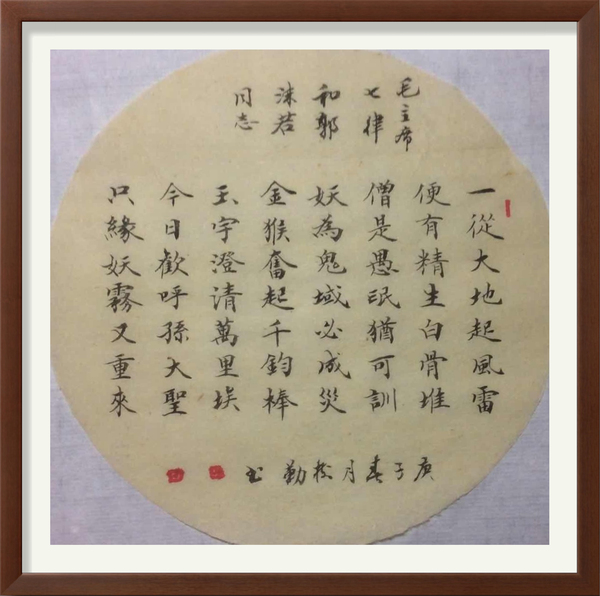 毛主席
七律
和郭
沫若
同志
一從大地起風雷
便有精生白骨堆
僧是愚氓猶可訓
妖為鬼域必成災
金猴奮起千鈞棒
玉宇澄清萬里埃
今日歡呼孫大聖
只緣妖霧又重來
庚子春月勤书